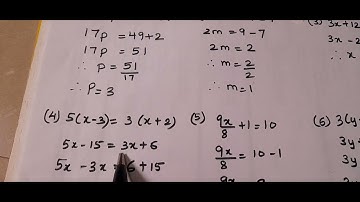 17p = 49+2
17p = 51
∴ p = 51/17
∴ p = 3
2m = 9-7
2m = 2
∴ m = 2/2
∴ m = 1
3x - 2
3x
(4) 5(x-3) = 3(x+2)
5x - 15 = 3x + 6
5x - 3x = 6 + 15
(5) 9x/8 + 1 = 10
9x/8 = 10 - 1
(6) 3(y
3y